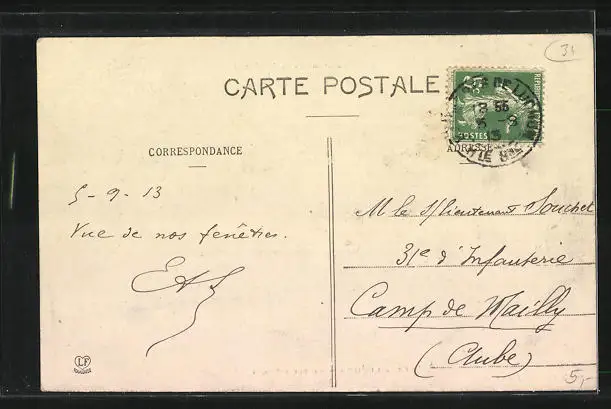 31
CARTE POSTALE
CORRESPONDANCE
ADRESSE
POSTES
5-9-13
Vue de nos fenêtres.
M le S/lieutenant Souchet
31e d'Infanterie
Camp de Mailly
(Aube)
LF
5,-